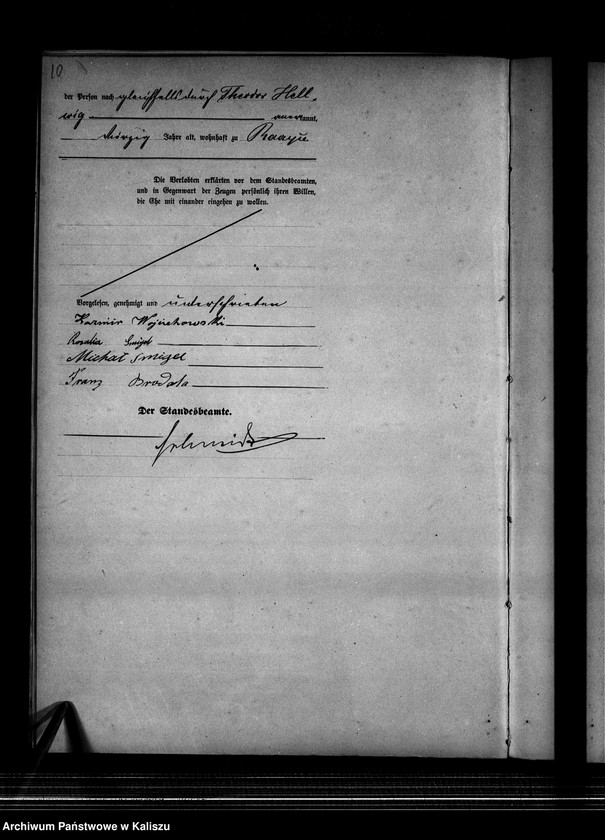 10
der Person nach gleichfalls durch Theodor Hell-
wig anerkannt,
vierzig Jahre alt, wohnhaft zu
Die Verlobten erklärten vor dem Standesbeamten,
und in Gegenwart der Zeugen persönlich ihren Willen,
die Ehe mit einander eingehen zu wollen.
Vorgelesen, genehmigt und unterschrieben
Kazmir Wojciechowski
Rosalia Smigel
Michał Smigel
Franz Brodala
Der Standesbeamte.
Schmidt
Archiwum Państwowe w Kaliszu